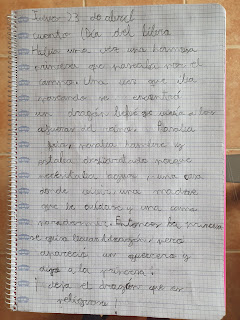 Jueves 23 de abril
cuento (Día del libro
Había una vez una hermosa
princesa que paseaba por el
campo. Una vez que iba
paseando se encontró
un dragón bebé que vivía a las
afueras del reino. Parecía
feliz, parecía hambre y
estaba desesperado porque
necesitaba agua, una casa
donde vivir, una madre
que le cuidase y una cama
para dormir. Entonces la princesa
se quiso llevar al dragón, pero
apareció un guerrero y
dijo a la princesa,
¡deja el dragón que es
peligroso!